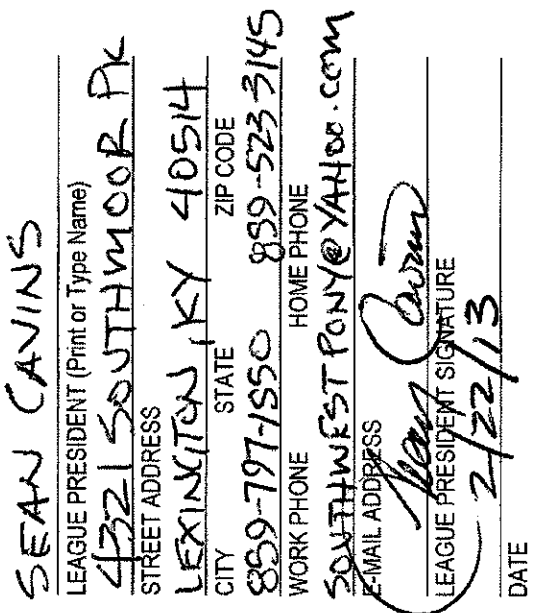 SEAN CAVINS
LEAGUE PRESIDENT (Print or Type Name)
4321 SOUTHMOOR PK
STREET ADDRESS
LEXINGTON, KY 40514
CITY STATE ZIP CODE
859-797-1550 859-523-3145
WORK PHONE HOME PHONE
SOUTHWESTPONY@YAHOO.COM
E-MAIL ADDRESS
Sean Cavins
LEAGUE PRESIDENT SIGNATURE
2/22/13
DATE